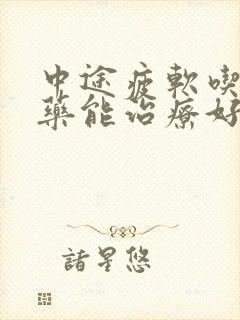 中途疲軟喫
藥能治療好
諸星悠